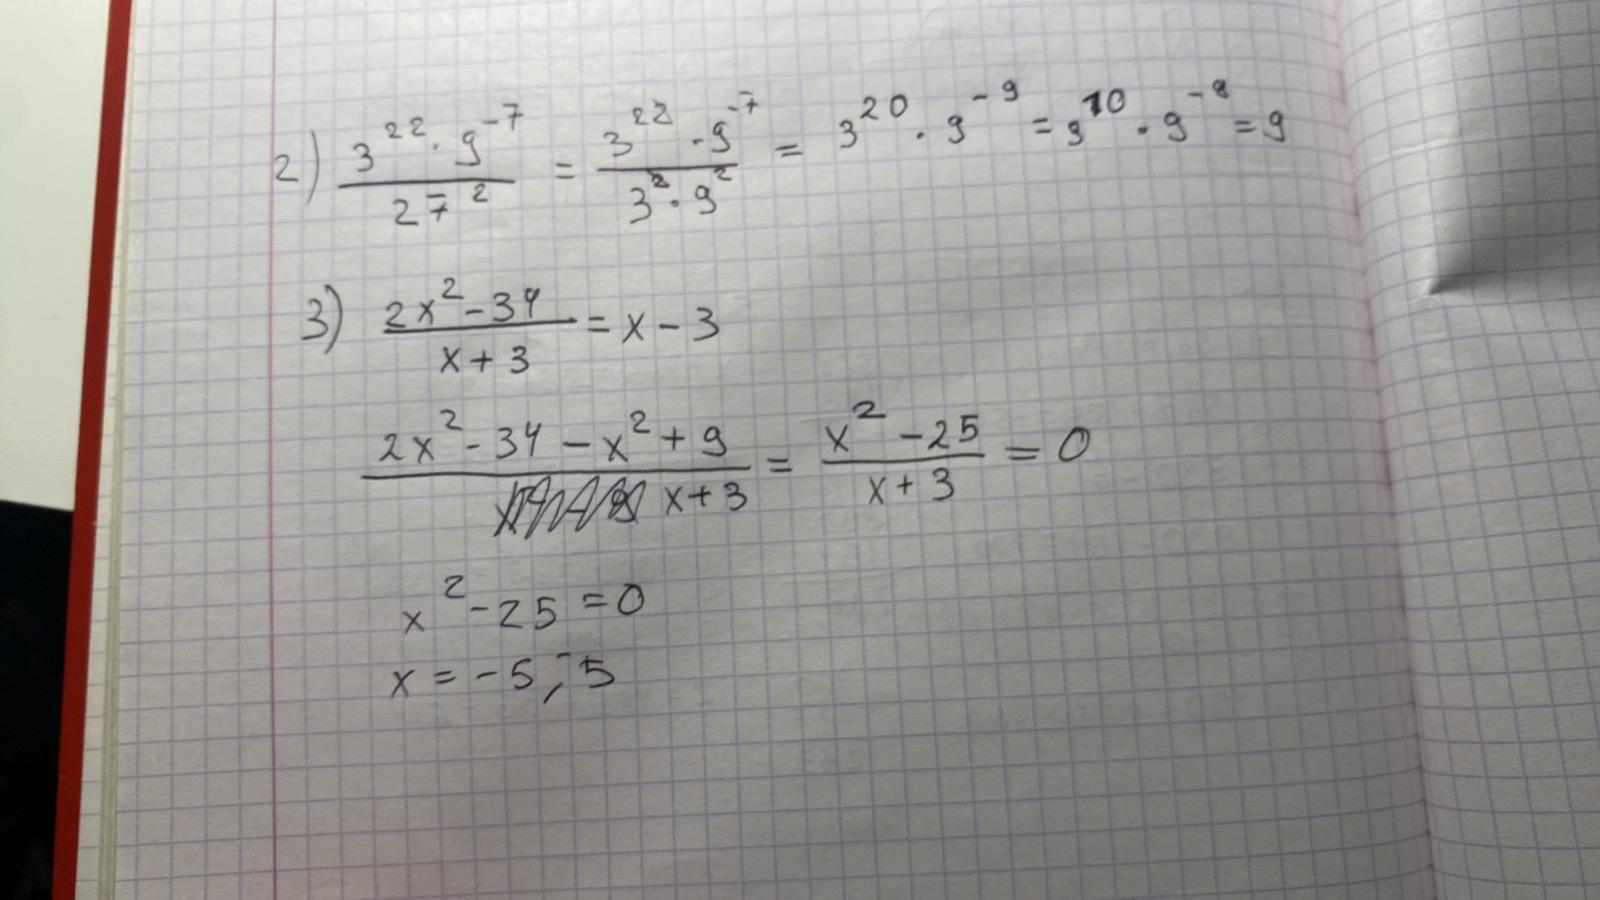 2) (3^22 · 9^-7)/(27^2) = (3^22 · 9^-7)/(3^2 · 9^2) = 3^20 · 9^-9 = 9^10 · 9^-9 = 9
3) (2x^2 - 34)/(x + 3) = x - 3
(2x^2 - 34 - x^2 + 9)/(x + 3) = (x^2 - 25)/(x + 3) = 0
x^2 - 25 = 0
x = -5; 5